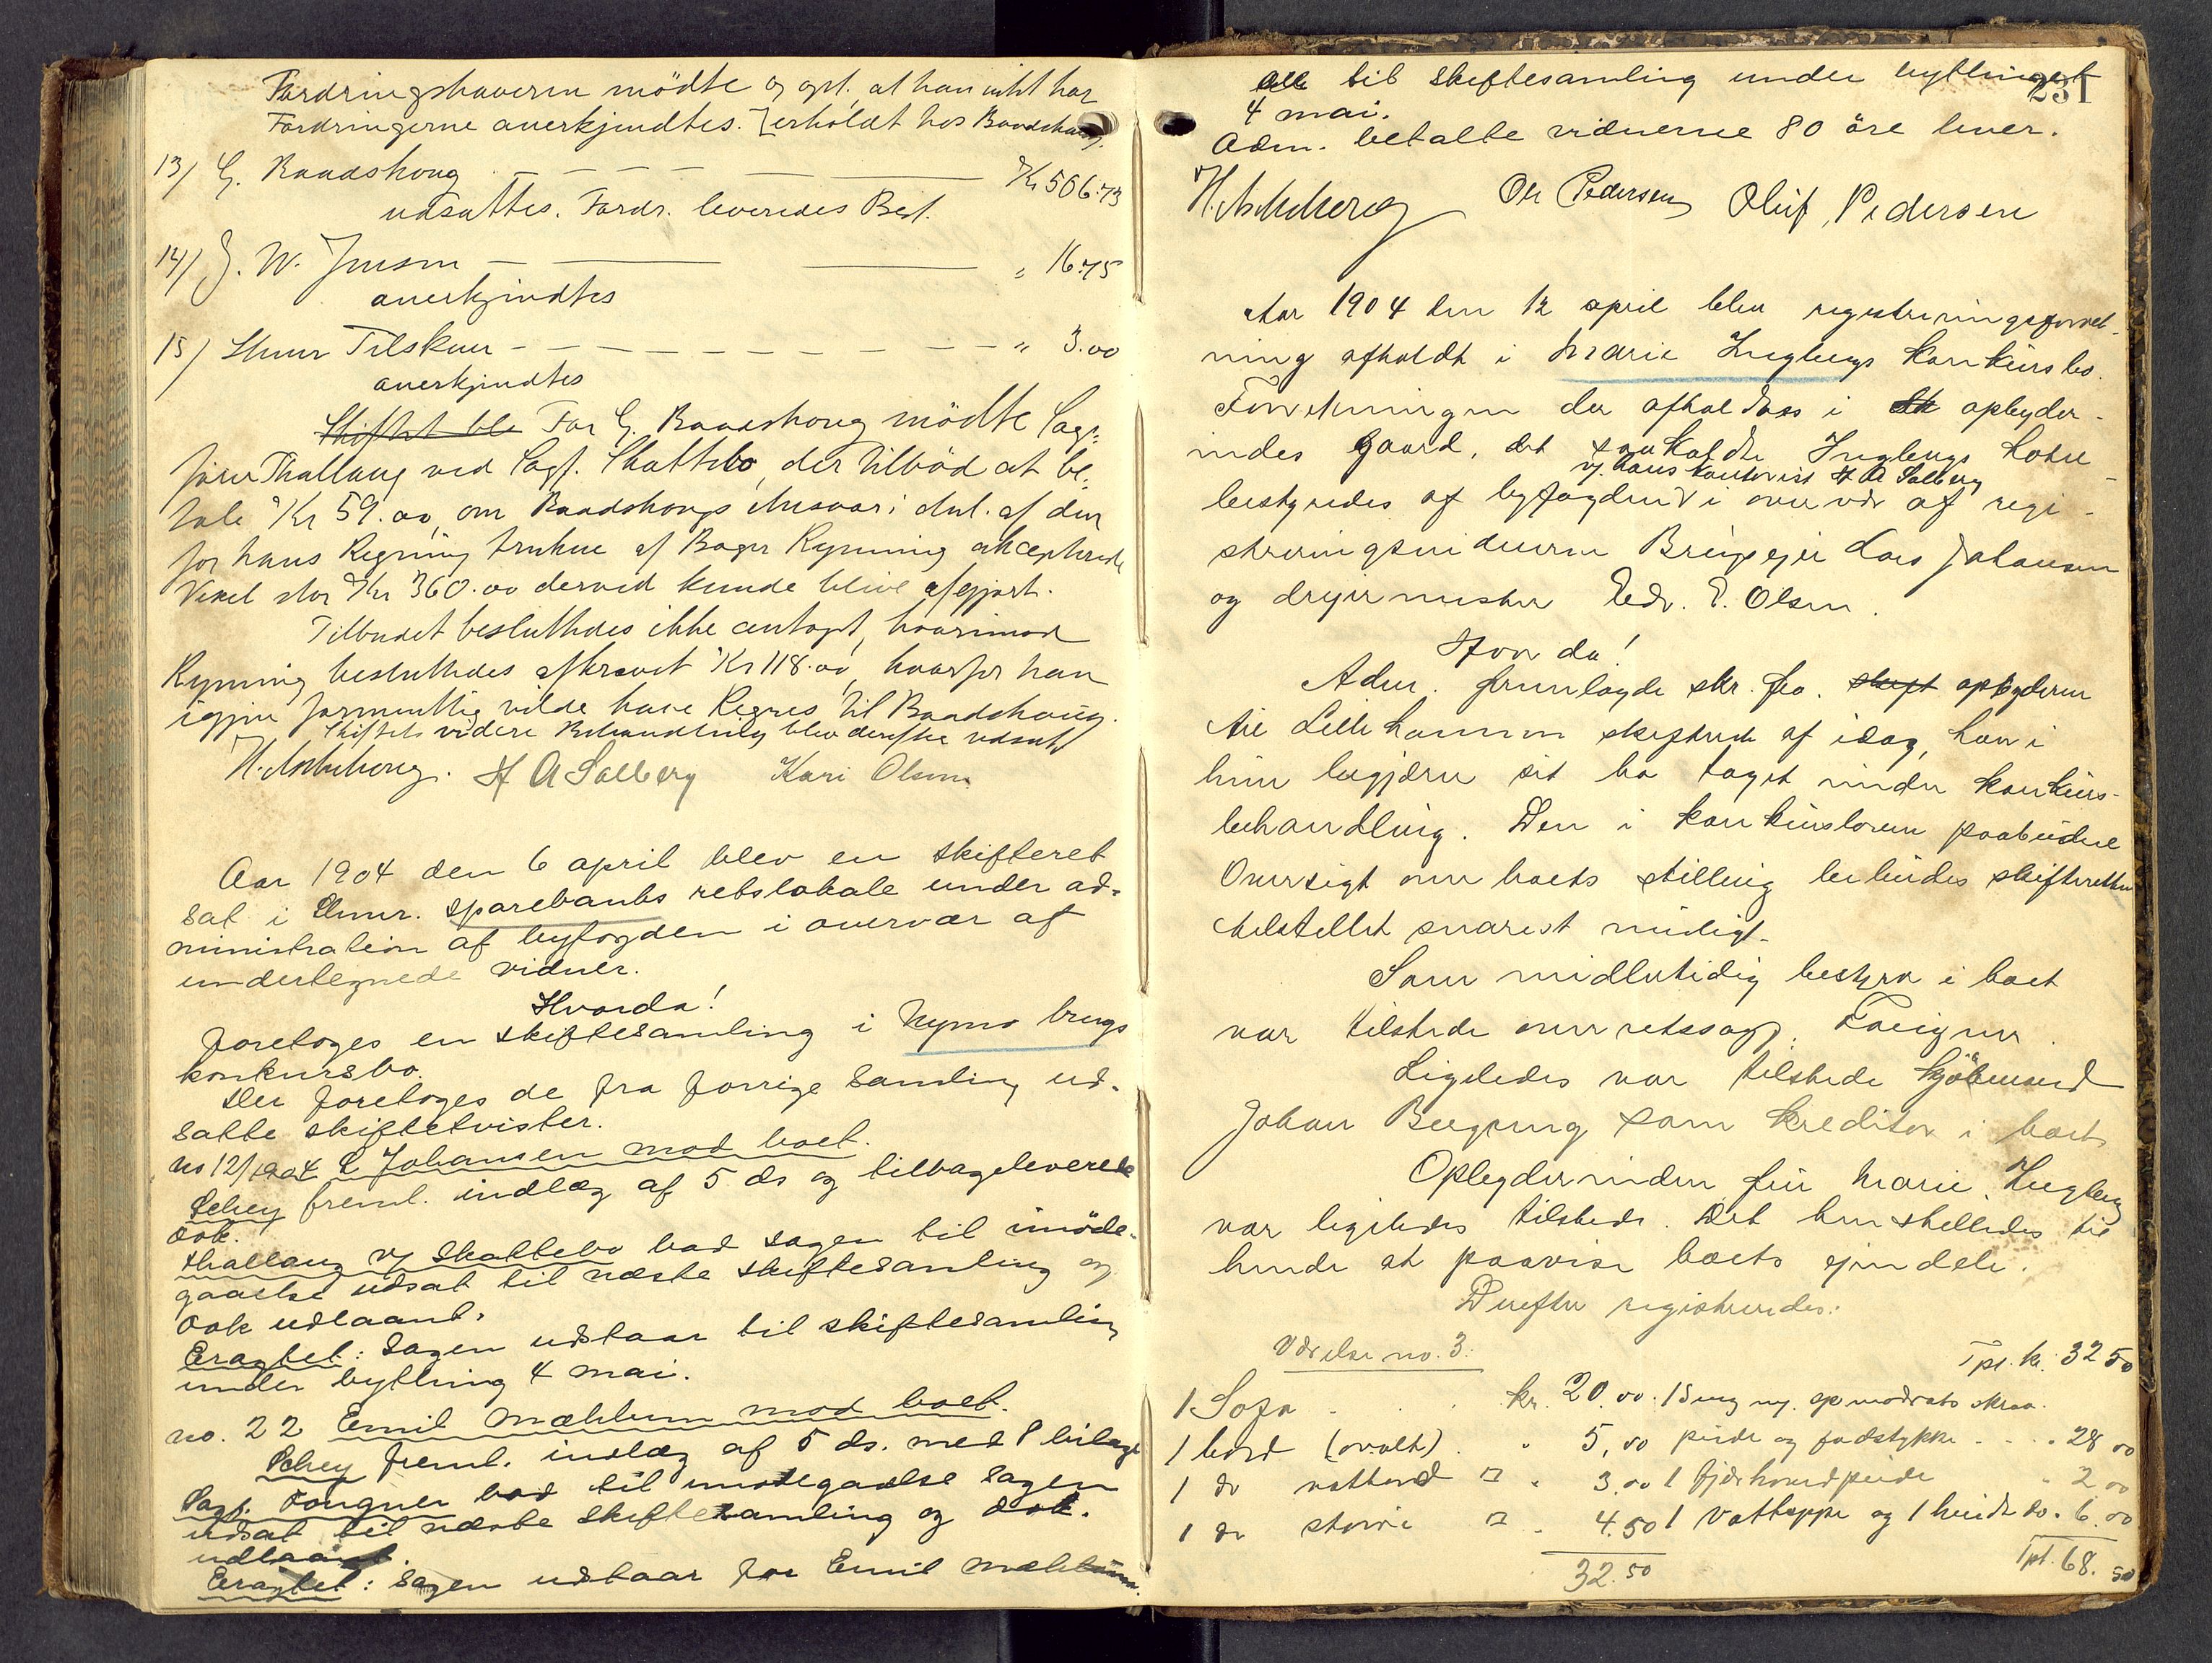 Fordringshaveren mödte og opl. at han intet har
Fordringerne anerkjendtes. [erholdt hos Baadshaug.
13/ G. Baadshoug — — — — — Kr 506.73
udsattes. Fordr. leveredes Best.
14/ J. W. Jensen — — — " 16.75
anerkjendtes
15/ Lhmr Tilskuer - - - - - - - - - - " 3.00
anerkjendtes
Skiftet ble For G. Baadshoug mödte Sag-
förer Thallaug ved Sagf. Skattebo, der tilböd at be-
tale Kr 59.00, om Baadshougs Ansvar i Anl. af den
for hans Regning trukne af Bager Rynning akcepterede
Vexel stor Kr 360.00 derved kunde blive afgjort.
Tilbudet besluttedes ikke antaget, hvorimod
Rynning besluttedes afkrævet Kr 118.00, hvorfor han
igjen formentlig vilde have Regres til Baadshoug.
Skiftets videre Behandling blev derefter udsat
H. A Solberg Kari Olsen
Aar 1904 den 6 april blev en skifteret
sat i Lhmr. sparebanks retslokale under ad-
ministration af byfogden i overvær af
undertegnede vidner.
Hvorda!
foretoges en skiftesamling i Nymo brugs
konkursbo.
Der foretoges de fra forrige samling ud-
satte skiftetvister.
no 12/1904 L Johansen mod boet.
Schey freml. indlæg af 5 ds og tilbageleverede
dok.
Thallaug v/ Skattebo bad sagen til imöde-
gaaelse udsat til næste skiftesamling og
dok udlaant.
Eragtet: Sagen udstaar til skiftesamling
under bytling 4 mai.
no. 22 Emil Mæhlum mod boet.
Schey freml. indlæg af 5 ds. med 8 bilage
Sagf. Fougner bad til imödegaaelse sagen
udsat til næste skiftesamling og dok.
udlaant.
Eragtet: Sagen udstaar for Emil Mæhlum
231
til skiftesamling under bytlinget
4 mai.
Adm. betalte vidnerne 80 öre hver.
Ole Pedersen Oluf Pedersen
Aar 1904 den 12 april blev registreringsforret-
ning afholdt i Marie Lngbergs konkursbo.
Forretningen der afholdtes i Sk opbyder-
indes gaard, det saakaldte Lngbergs hotel
v/ hans kontorist H A Solberg
bestyredes af byfogden V i overvær af regi-
streringsvidnerne Brugseier Lars Johansen
og dreiermester Edv. E. Olsen.
Hvor da!
Adm. fremlagde skr. fra skift opbyderen
til Lillehammer skifteret af idag, hvori
hun begjærer sit bo taget under konkurs-
behandling. Den i konkursloven paabudne
Oversigt over boets stilling bebudes skifteretten
tilstillet snarest muligt.
Som midlertidig bestyrer i boet
var tilstede overretssagf. Fougner
Ligeledes var tilstede kjöbmand
Johan som kreditor i boet
Opbyderinden fru Marie Lngberg
var ligeledes tilstede. Det henstilledes til
hende at paavise boets eiendele.
Derefter registreredes:
Værelse no. 3: Tpt. kr. 32 50
1 Sofa . . . kr. 20.00 1 Seng m. opmadrats skraa-
1 bord (ovalt) . " 5,00 pude og fodstykke . . . . 28 00
1 do natbord □ " 3.00 1 fjærhovedpude " 2 00
1 do större □ " 4.50 1 Vattæppe og 1 hvidt do. 6.00
32.50 Tpt. 68. 50